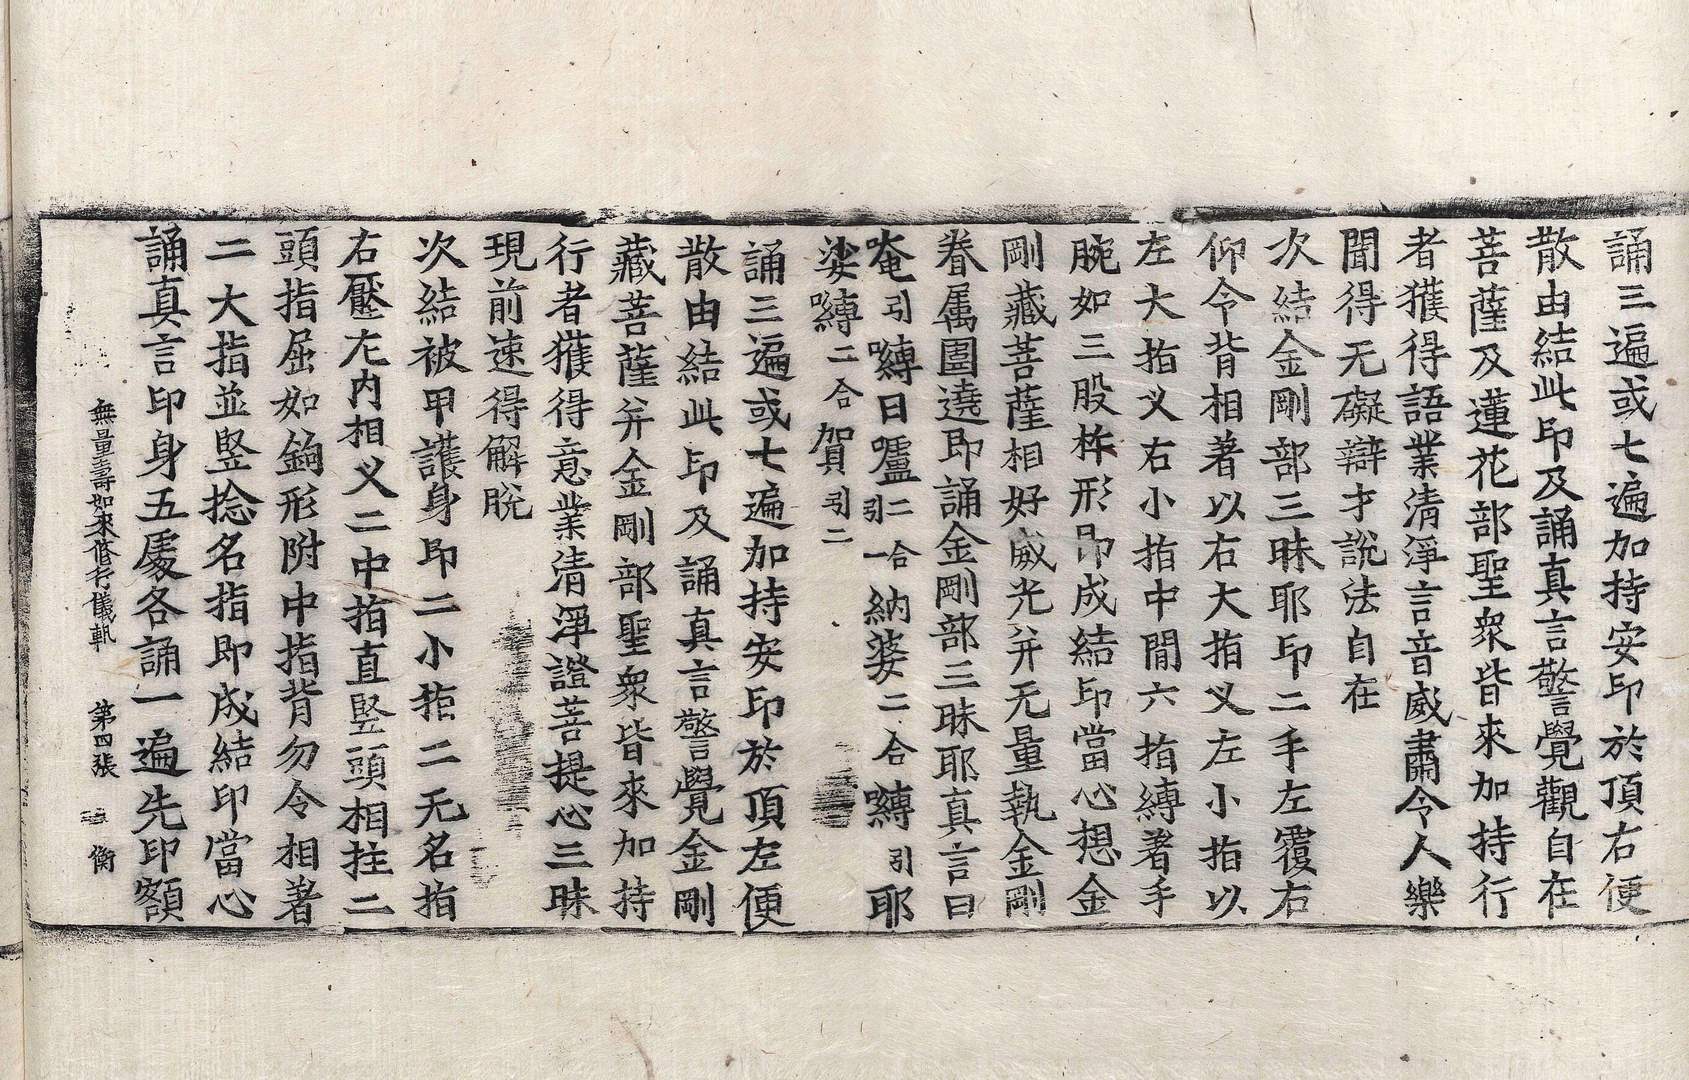 誦三遍或七遍加持安印於頂右便
散由結此印及誦真言警覺觀自在
菩薩及蓮花部聖衆皆來加持行
者獲得語業清淨言音威肅令人樂
聞得无礙辯才說法自在
次結金剛部三昧耶印二手左覆右
仰令背相著以右大指叉左小指以
左大指叉右小指中間六指縛著手
腕如三股杵形即成結印當心想金
剛藏菩薩相好威光并无量執金剛
眷属圍遶即誦金剛部三昧耶真言曰
唵引嚩日嚧二合引一納婆二合嚩引耶
娑嚩二合賀引二
誦三遍或七遍加持安印於頂左便
散由結此印及誦真言警覺金剛
藏菩薩并金剛部聖衆皆來加持
行者獲得意業清淨證菩提心三昧
現前速得解脫
次結被甲護身印二小指二无名指
右壓左內相叉二中指直竪頭相拄二
頭指屈如鉤形附中指背勿令相著
二大指並竪捻名指即成結印當心
誦真言印身五處各誦一遍先印額
無量壽如來修行儀軌 第四張 衡